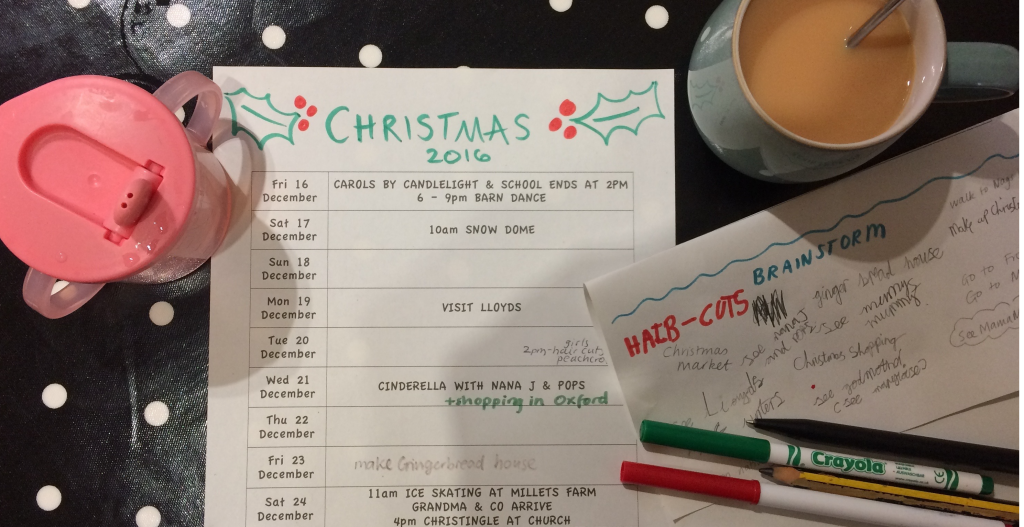 CHRISTMAS
2016
Fri 16 December
CAROLS BY CANDLELIGHT & SCHOOL ENDS AT 2PM
6 - 9pm BARN DANCE
Sat 17 December
10am SNOW DOME
Sun 18 December
Mon 19 December
VISIT LLOYDS
Tue 20 December
girls
2pm-hair cuts
Wed 21 December
CINDERELLA WITH NANA J & POPS
+shopping in Oxford
Thu 22 December
Fri 23 December
make Gingerbread house
Sat 24 December
11am ICE SKATING AT MILLETS FARM
GRANDMA & CO ARRIVE
4pm CHRISTINGLE AT CHURCH
BRAINSTORM
HAIB-CUTS
ginger bread house
Christmas
market
see nana J
see
Christmas Shopping
see godmothers
walk to
Make up
Go to
Go to
See Mama
Crayola